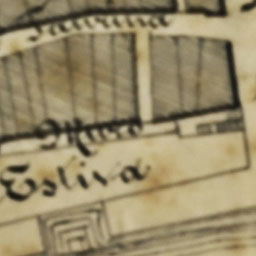 Taurina
Muro
Estiva